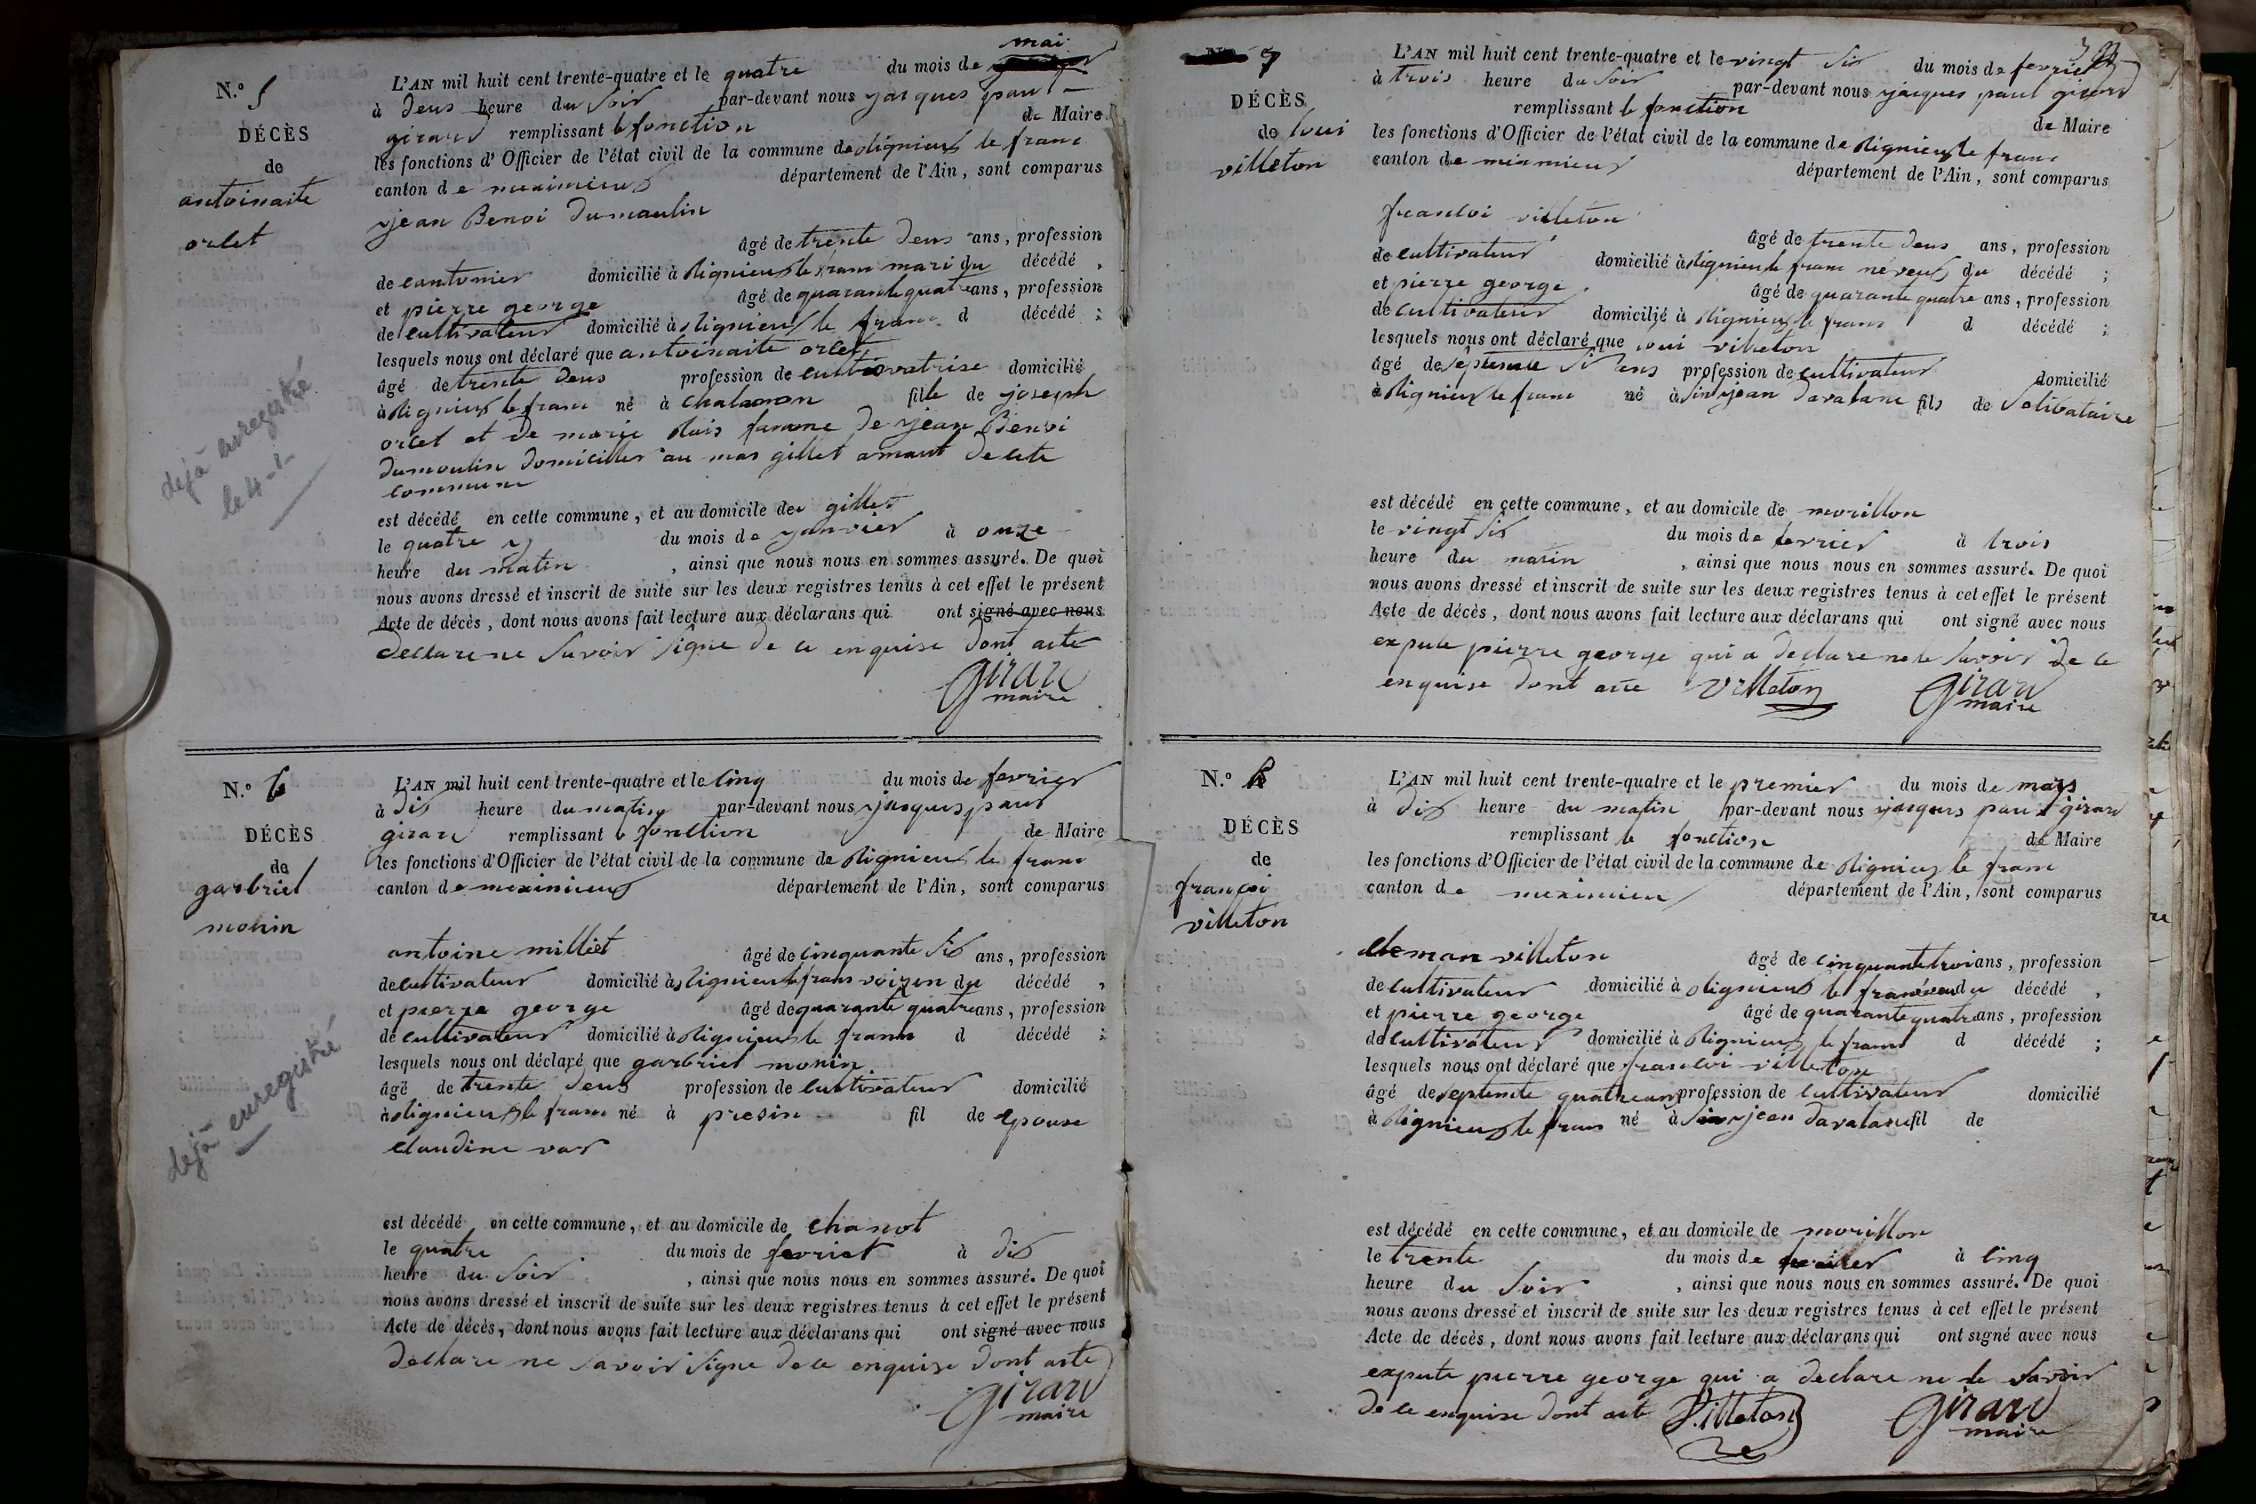 N.º 5
DÉCÈS
de
antoinaite
orlet
mai
L'AN mil huit cent trente-quatre et le quatre du mois de
à deus heure du soir par-devant nous jacques paul
girard remplissant le fonction de Maire
les fonctions d'Officier de l'état civil de la commune de rignieux le franc
canton de meximieux département de l'Ain, sont comparus
jean Benoi dumoulin
âgé de trente deus ans, profession
de cantonier domicilié à rignieux le franc mari du décédé,
et pierre george âgé de quarante quatre ans, profession
de cultivateur domicilié à rignieux le franc d décédé ;
lesquels nous ont déclaré que antoinaite orlet
âgé de trente deus profession de cultivatrise domicilié
à rignieux le franc né à chalamon fille de joseph
orlet et de marie famme de jean Benoi
dumoulin domicilier au mas gillet amant de cete
commune
est décédé en cette commune, et au domicile de gillet
le quatre du mois de janvier à onze
heure du matin, ainsi que nous nous en sommes assuré. De quoi
nous avons dressé et inscrit de suite sur les deux registres tenus à cet effet le présent
Acte de décès, dont nous avons fait lecture aux déclarans qui ont signé avec nous
declare ne savoir signe de ce enquise dont acte
girard
maire
déjà enregistré
le 4-1-
N.º 6
DÉCÈS
de
garbriel
monin
L'AN mil huit cent trente-quatre et le cinq du mois de fevrier
à dix heure du matin par-devant nous jacques paul
girard remplissant le fonction de Maire
les fonctions d'Officier de l'état civil de la commune de rignieux le franc
canton de meximieux département de l'Ain, sont comparus
antoine milliet âgé de cinquante six ans, profession
de cultivateur domicilié à rignieux le franc voizen du décédé,
et pierre george âgé de quarante quatre ans, profession
de cultivateur domicilié à rignieux le franc d décédé ;
lesquels nous ont déclaré que garbriel monin
âgé de trente deus profession de cultivateur domicilié
à rignieux le franc né à presin fil de epouse
claudine var
est décédé en cette commune, et au domicile de chanot
le quatre du mois de fevriet à dix
heure du soir, ainsi que nous nous en sommes assuré. De quoi
nous avons dressé et inscrit de suite sur les deux registres tenus à cet effet le présent
Acte de décès, dont nous avons fait lecture aux déclarans qui ont signé avec nous
declare ne savoir signe de ce enquise dont acte
girard
maire
déjà enregistré
7
DÉCÈS
de loui
villeton
L'AN mil huit cent trente-quatre et le vingt six du mois de fevrier
à trois heure du soir par-devant nous jacques paul girard
remplissant le fonction de Maire
les fonctions d'Officier de l'état civil de la commune de rignieux le franc
canton de miximieux département de l'Ain, sont comparus
francoi villeton
âgé de trente deus ans, profession
de cultivateur domicilié à rignieux le franc neveux du décédé ;
et pierre george âgé de quarante quatre ans, profession
de cultivateur domicilié à rignieux le franc d décédé ;
lesquels nous ont déclaré que loui villeton
âgé de septente si ens profession de cultivateur domicilié
à rignieux le franc né à sint jean davalane fils de selibataire
est décédé en cette commune, et au domicile de morillon
le vingt six du mois de fevrier à trois
heure du matin, ainsi que nous nous en sommes assuré. De quoi
nous avons dressé et inscrit de suite sur les deux registres tenus à cet effet le présent
Acte de décès, dont nous avons fait lecture aux déclarans qui ont signé avec nous
expute pierre george qui a declare ne le savoir de ce
enquise dont acte villeton girard
maire
N.º 8
DÉCÈS
de
françoi
villeton
L'AN mil huit cent trente-quatre et le premier du mois de mars
à dix heure du matin par-devant nous jacques paul girard
remplissant le fonction de Maire
les fonctions d'Officier de l'état civil de la commune de rignieux le franc
canton de meximieu département de l'Ain, sont comparus
cleman villeton âgé de cinquante troi ans, profession
de cultivateur domicilié à rignieux le franc neveu du décédé,
et pierre george âgé de quarante quatre ans, profession
de cultivateur domicilié à rignieux le franc d décédé ;
lesquels nous ont déclaré que francoi villeton
âgé de septente quatre ans profession de cultivateur domicilié
à rignieux le franc né à sin jean davalane fil de
est décédé en cette commune, et au domicile de morillon
le trente du mois de fevrier à cinq
heure du soir, ainsi que nous nous en sommes assuré. De quoi
nous avons dressé et inscrit de suite sur les deux registres tenus à cet effet le présent
Acte de décès, dont nous avons fait lecture aux déclarans qui ont signé avec nous
expute pierre george qui a declare ne le savoir
de ce enquise dont acte Villeton girard
maire